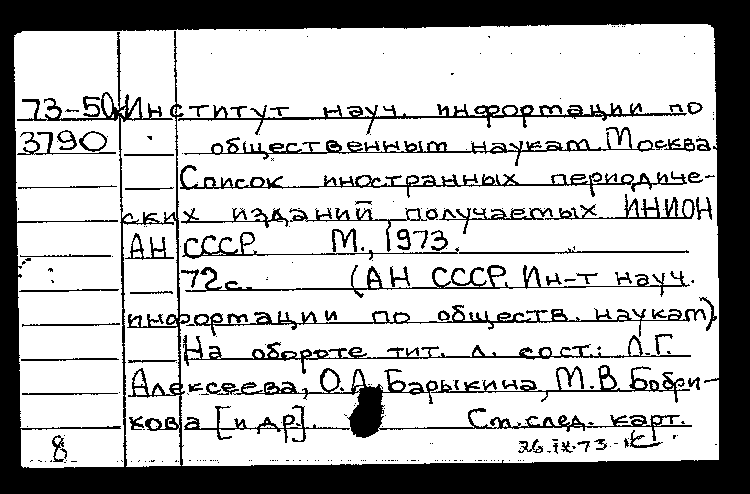 73-50к Институт науч. информации по
3790 общественным наукам. Москва.
Список иностранных периодиче-
ских изданий, получаемых ИНИОН
АН СССР. М., 1973.
72с. (АН СССР. Ин-т науч.
информации по обществ. наукам).
На обороте тит. л. сост.: Л.Г.
Алексеева, О.А. Барыкина, М.В. Бобри-
кова [и др.]. См. след. карт.
8 26.IX.73